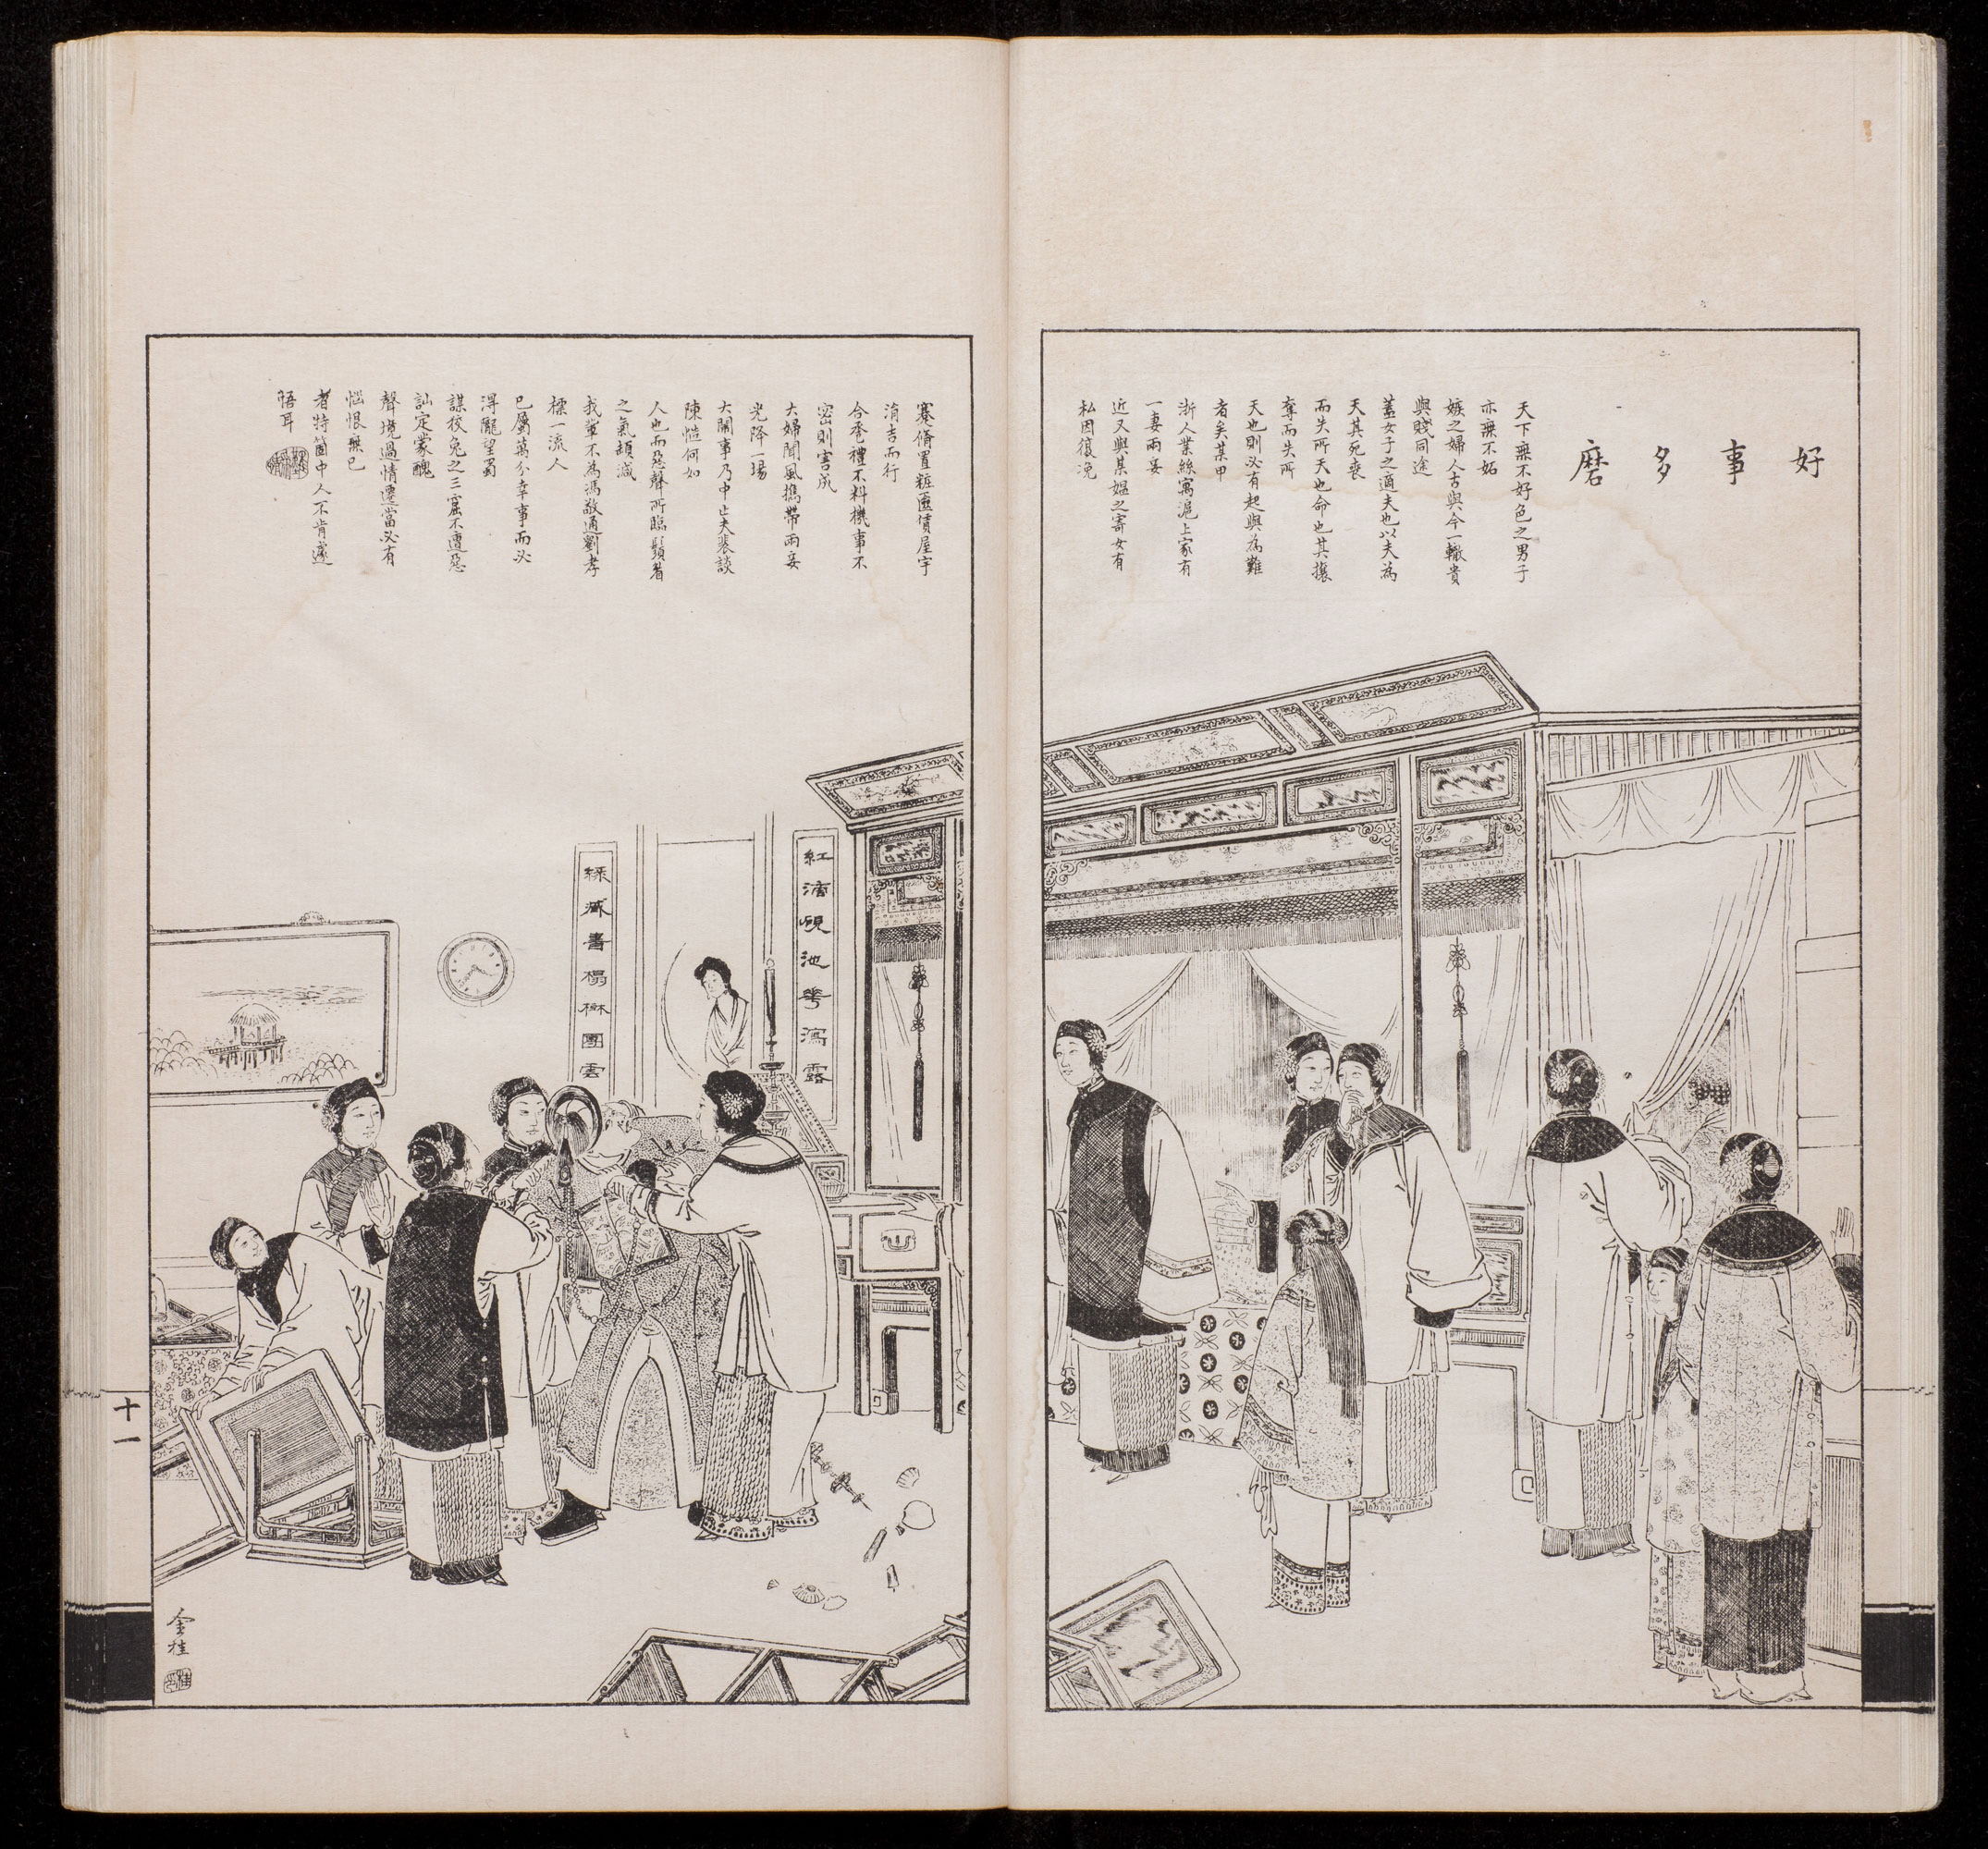 好事多磨
天下無不好色之男子
亦無不妬
嫉之婦人古與今一轍貴
與賤同途
蓋女子之適夫也以夫為
天其死喪
而失所天也命也其攘
奪而失所
天也則必有起與為難
者矣某甲
浙人業絲寓滬上家有
一妻兩妾
近又與某媪之寄女有
私因復浼
蹇脩置粧匳賃屋宇
涓吉而行
合巹禮不料機事不
密則害成
大婦聞風攜帶兩妾
光降一場
大鬧事乃中止夫裴談
陳慥何如
人也而惡聲所臨鬚眉
之氣頓減
我輩不為馮敬通劉孝
標一流人
已屬萬分幸事而必
得隴望蜀
謀狡兔之三窟不遭惡
訕定蒙醜
聲境過情遷當必有
惱恨無已
者特箇中人不肯遽
悟耳
紅滴硯池花瀉露
綠藏書榻樹團雲
十一
金桂